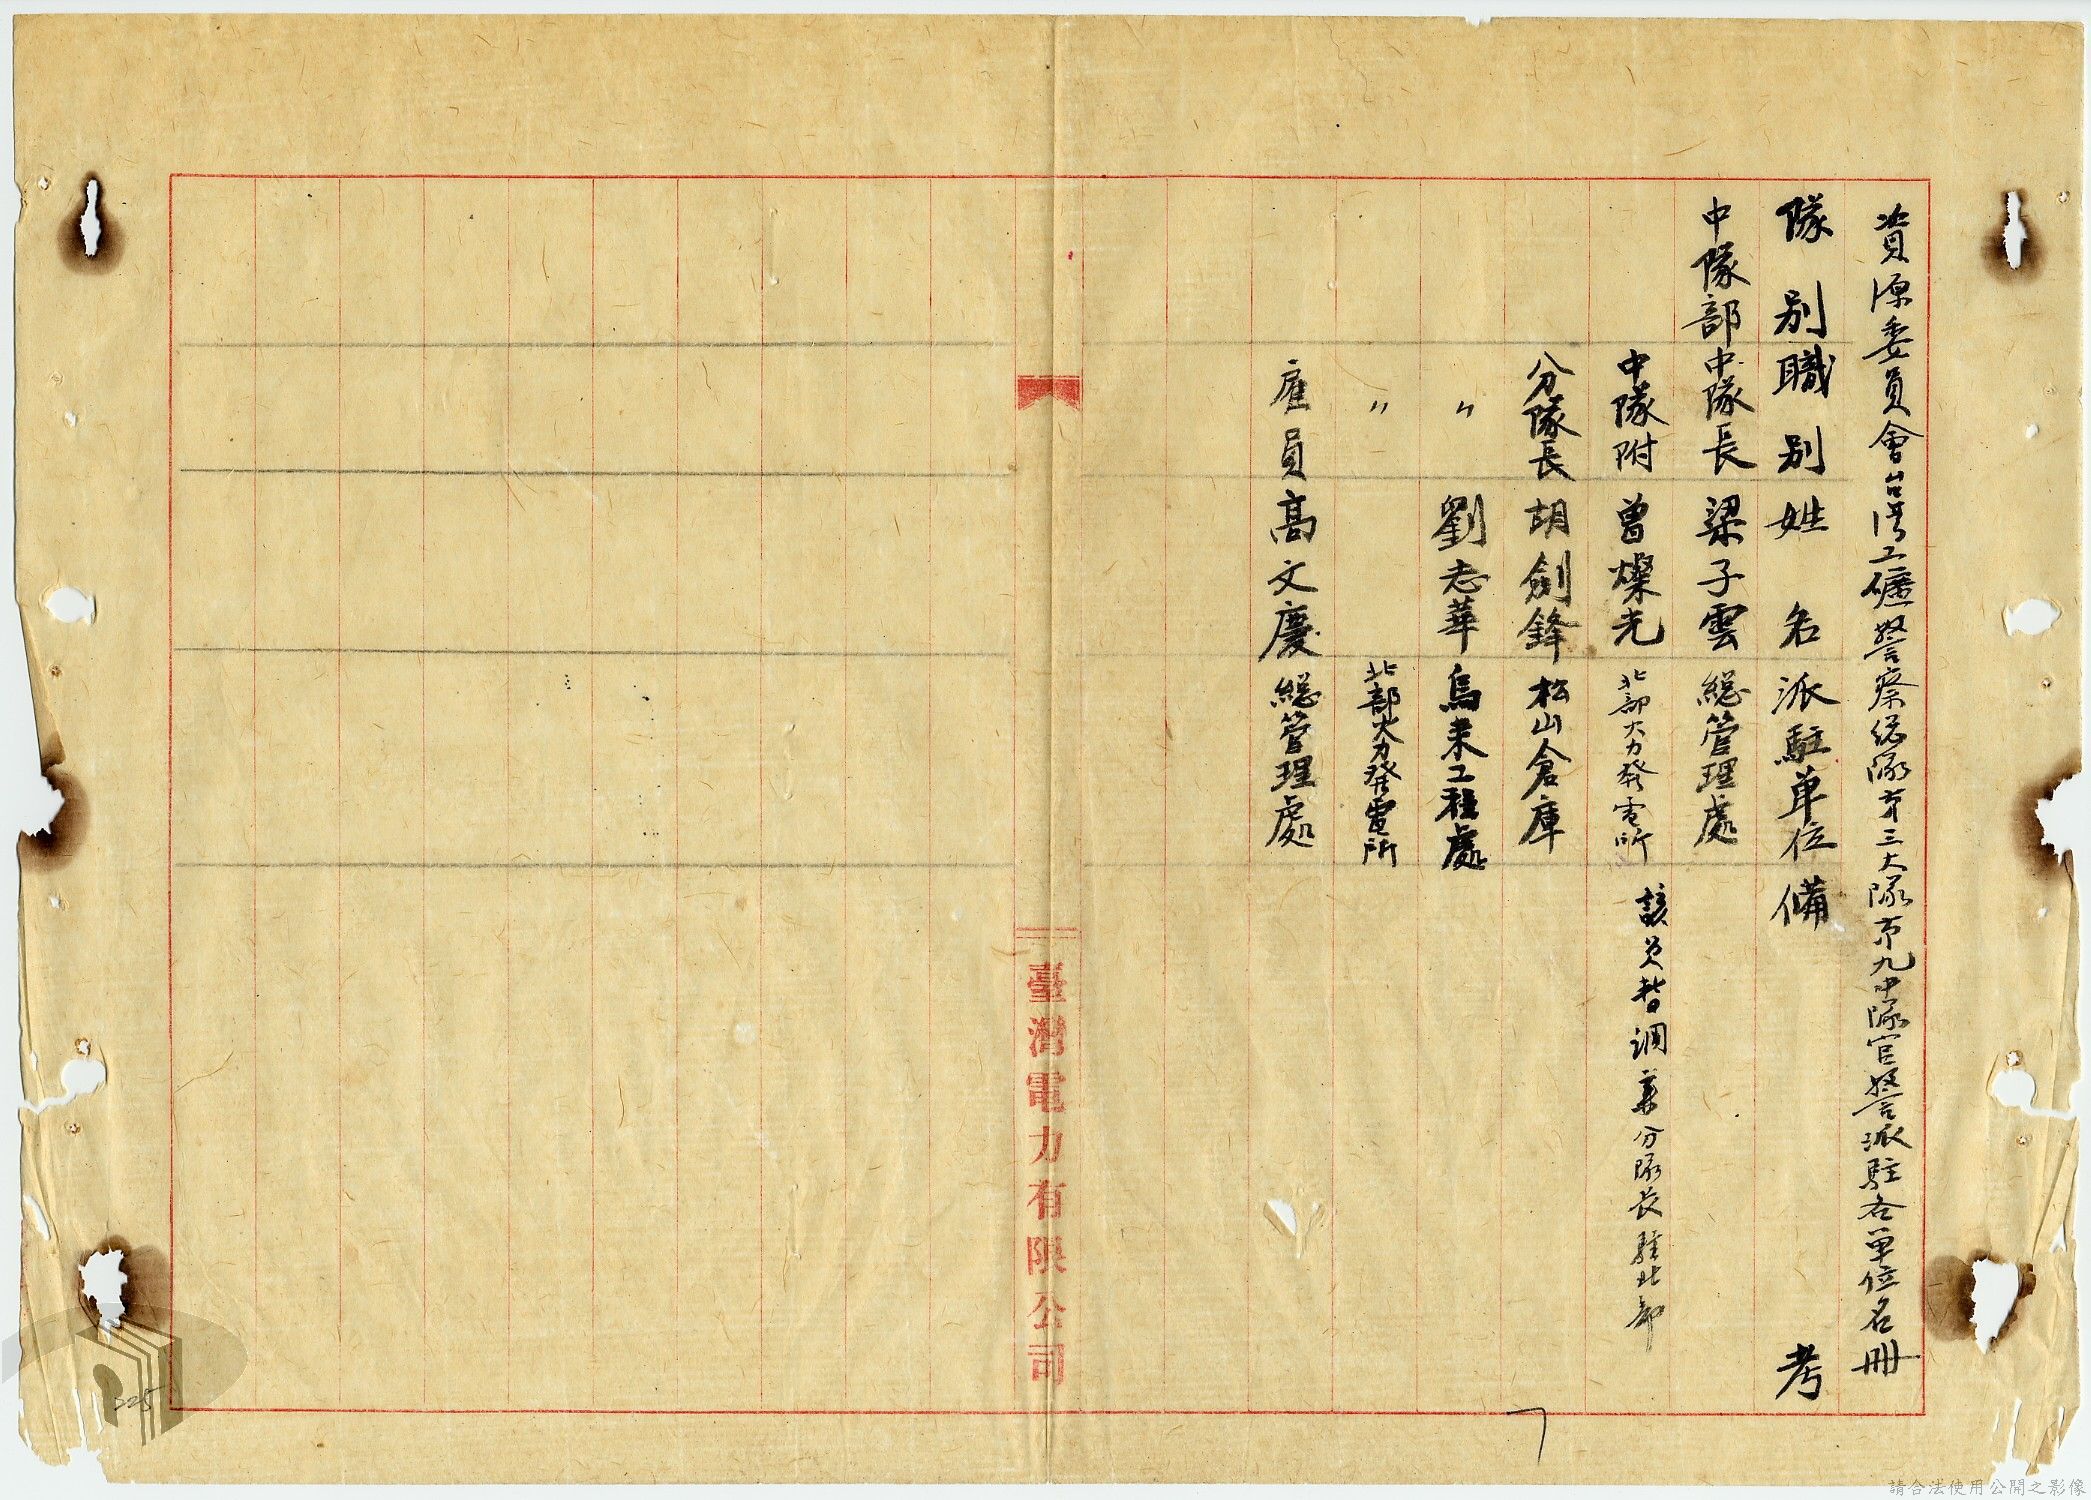 資源委員會台湾工礦警察总隊第三大隊第九中隊官警派駐各單位名冊
隊別職別姓名派駐单位備考
中隊部中隊長梁子雲總管理處
中隊附曾燦光北部火力發電所該員暫調兼分隊長駐北部
分隊長胡劍鋒松山倉庫
〃劉志華烏来工程處
〃北部火力發電所
雇員高文慶總管理處
臺灣電力有限公司
7
225
請合法使用公開之影像